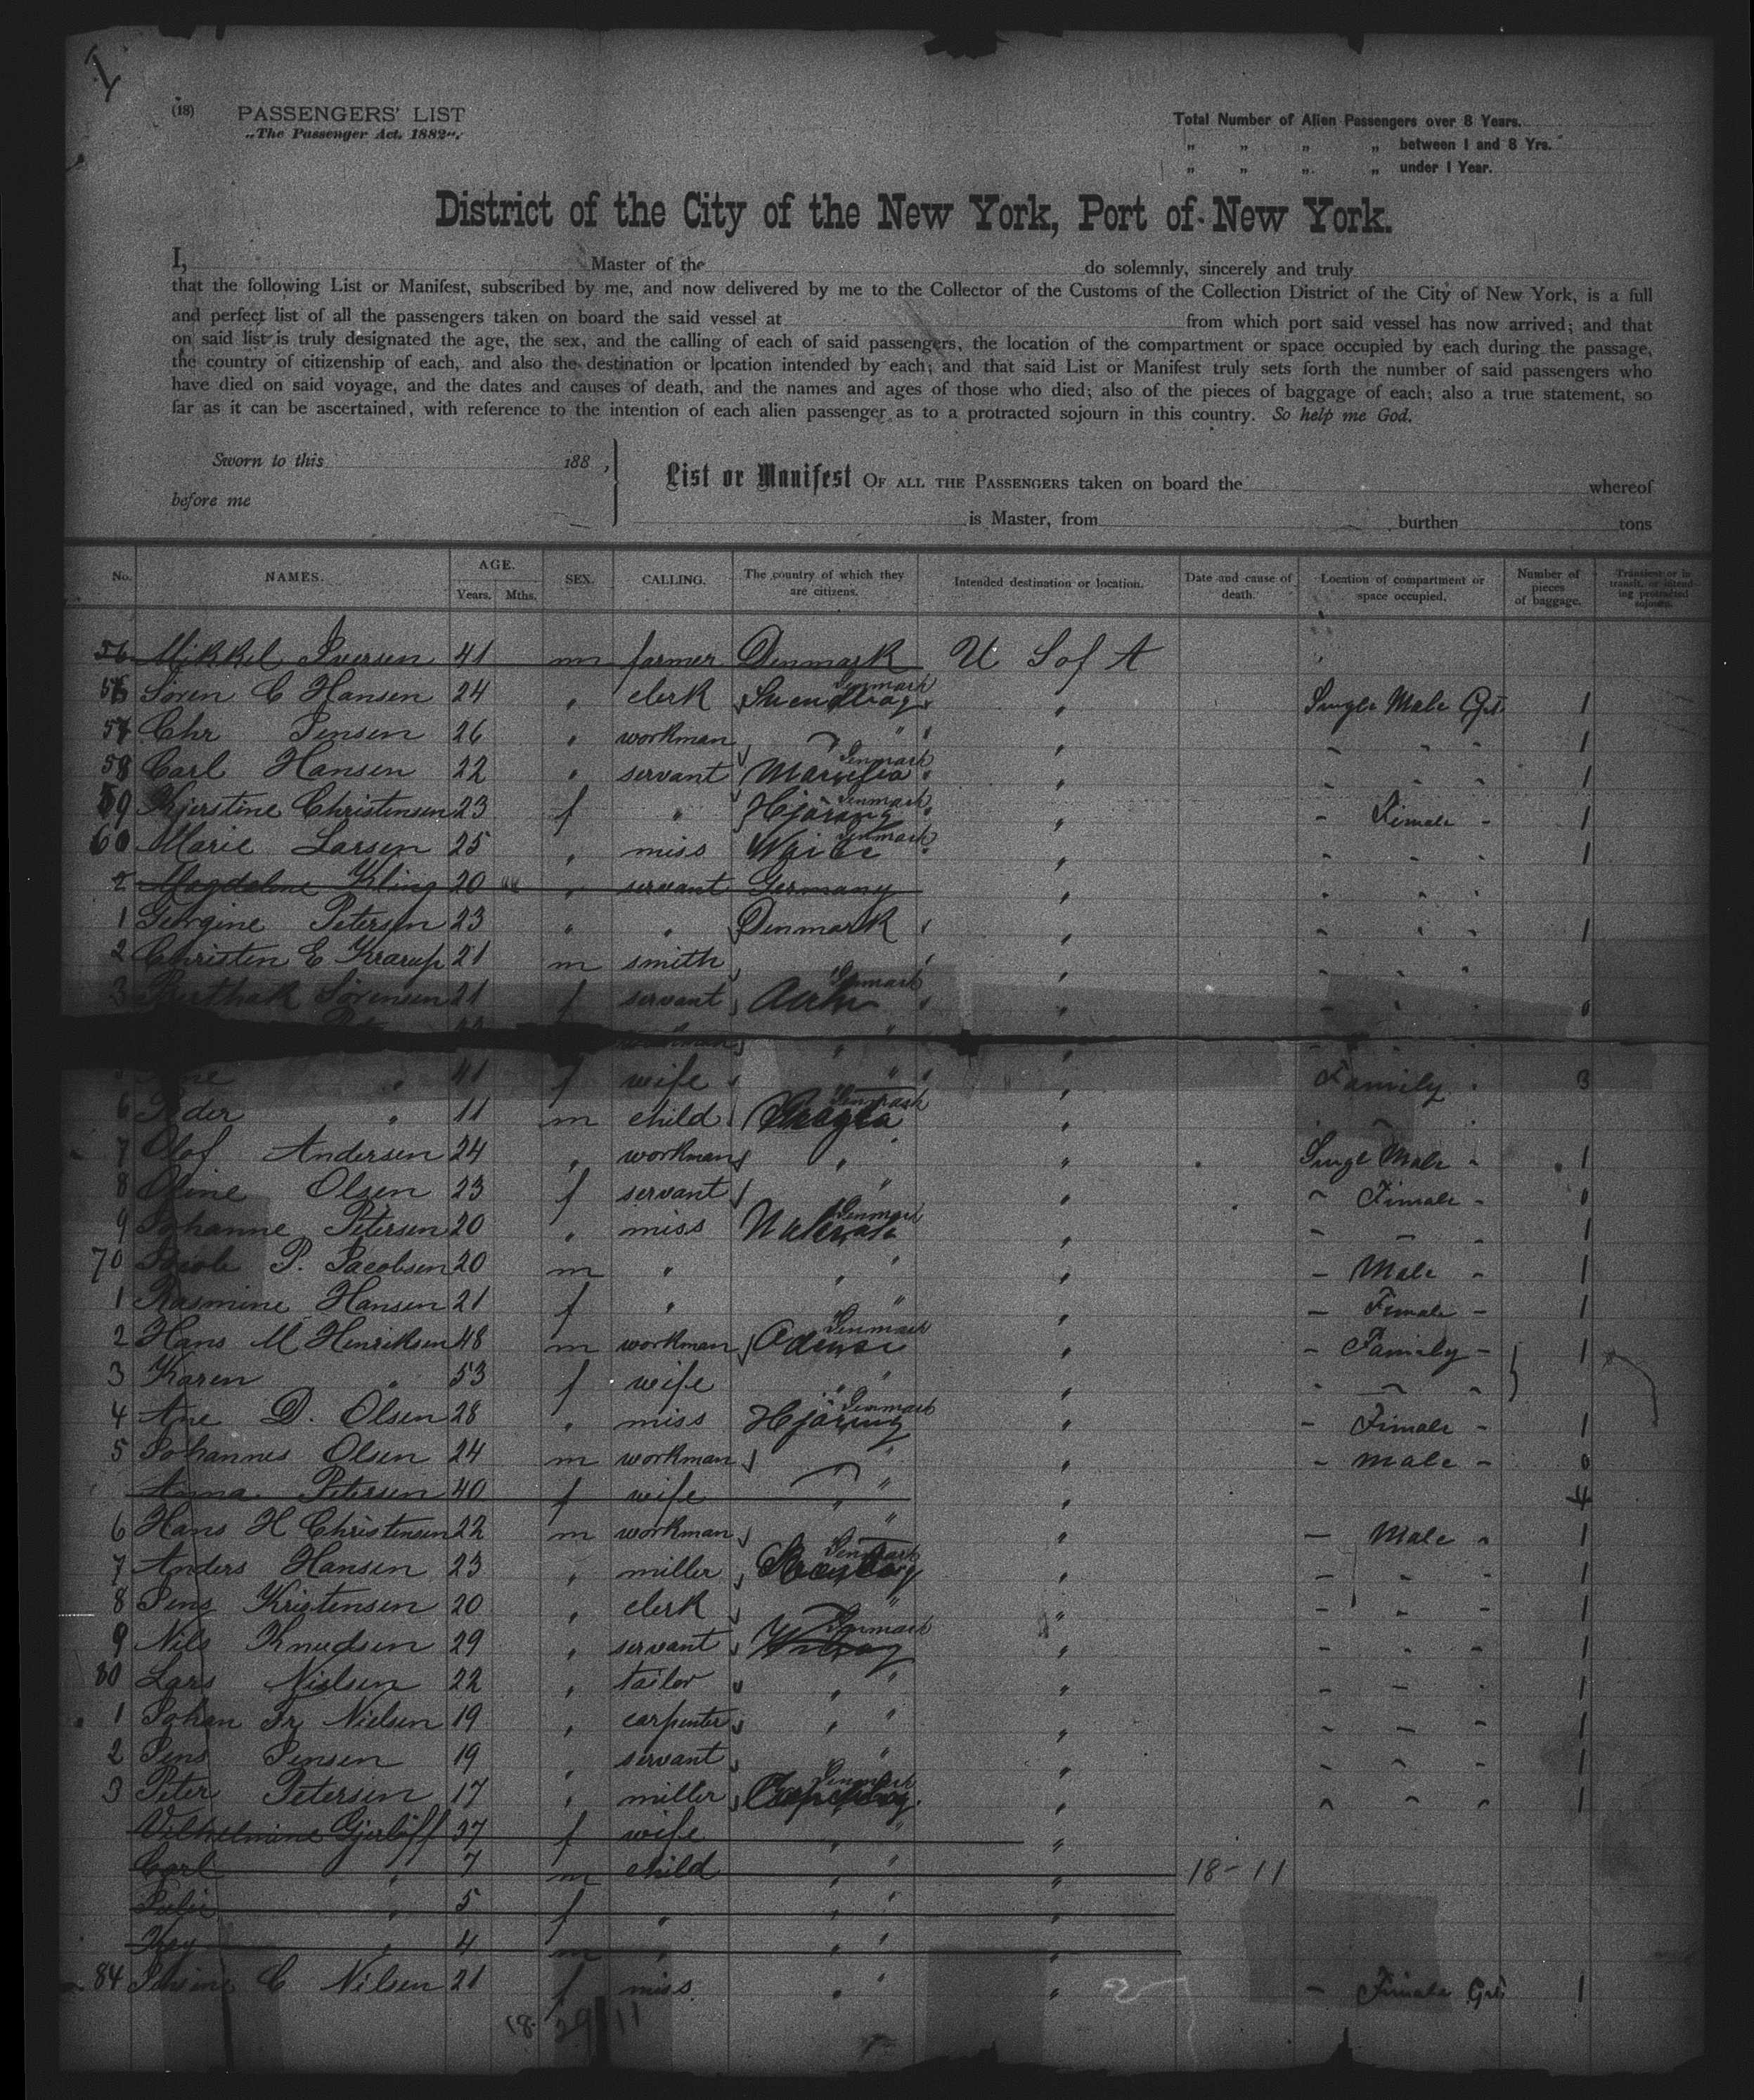 (18) PASSENGERS' LIST
„The Passenger Act, 1882".
Total Number of Alien Passengers over 8 Years.
„ „ „ „ between 1 and 8 Yrs.
„ „ „ „ under 1 Year.
District of the City of the New York, Port of New York.
I, Master of the do solemnly, sincerely and truly
that the following List or Manifest, subscribed by me, and now delivered by me to the Collector of the Customs of the Collection District of the City of New York, is a full
and perfect list of all the passengers taken on board the said vessel at from which port said vessel has now arrived; and that
on said list is truly designated the age, the sex, and the calling of each of said passengers, the location of the compartment or space occupied by each during the passage,
the country of citizenship of each, and also the destination or location intended by each; and that said List or Manifest truly sets forth the number of said passengers who
have died on said voyage, and the dates and causes of death, and the names and ages of those who died; also of the pieces of baggage of each; also a true statement, so
far as it can be ascertained, with reference to the intention of each alien passenger as to a protracted sojourn in this country. So help me God.
Sworn to this 188 ,
before me
List or Manifest OF ALL THE PASSENGERS taken on board the whereof
is Master, from burthen tons
No. NAMES. AGE. Years. Mths. SEX. CALLING. The country of which they are citizens. Intended destination or location. Date and cause of death. Location of compartment or space occupied. Number of pieces of baggage. Transient or in transit, or intending protracted sojourn.
56 Mikkel Iversen 41 m farmer Denmark U S of A
56 Sören C Hansen 24 " clerk Svendborg Denmark " Single Male Cpt. 1
57 Chr Jensen 26 " workman " " " - - - 1
58 Carl Hansen 22 " servant Denmark " - - - 1
59 Kjerstine Christensen 23 f " Hjöring Denmark " - Female - 1
60 Marie Larsen 25 " miss Denmark " - - - 1
2 Magdalene Kling 20 " servant Germany " - - -
1 Georgine Petersen 23 " " Denmark " - - - 1
2 Christen E Krarup 21 m smith " " - - -
3 Sörensen 21 f servant Denmark " - - - 0
" " " - - -
5 " 41 f wife " " " Family - 3
6 Peder " 11 m child Denmark " -
7 Olof Andersen 24 " workman " " " Single Male - 1
8 Oline Olsen 23 f servant " " - Female - 0
9 Johanne Petersen 20 " miss Denmark " - - - 1
70 Jacob P. Jacobsen 20 m " " " " - Male - 1
1 Rasmine Hansen 21 f " " " - Female - 1
2 Hans M Henriksen 48 m workman Odense Denmark " - Family - 1
3 Karen " 53 f wife " " " - - -
4 Ane D. Olsen 28 " miss Hjöring Denmark " - Female - 1
5 Johannes Olsen 24 m workman " " - Male - 0
Anna Petersen 40 f wife " " " 4
6 Hans H Christensen 22 m workman " " - Male - 1
7 Anders Hansen 23 " miller Denmark " - - - 1
8 Jens Kristensen 20 " clerk " " - - - 1
9 Nils Knudsen 29 " servant Denmark " - - - 1
80 Lars Nielsen 22 " tailor " " " - - - 1
1 Johan Fr Nielsen 19 " carpenter " " " - - - 1
2 Jens Jensen 19 " servant " " - - - 1
3 Peter Petersen 17 " miller Denmark " - - - 1
Vilhelmine Gjerlöff 37 f wife " " "
Carl " 7 m child " " " 18-11
5 f " " " "
Kay " 4 m " " " "
84 C Nilsen 21 f miss " " " - Female Cpt 1
18 29/11